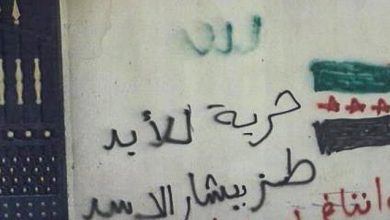 حرية للأبد
طز ببشار الاسد